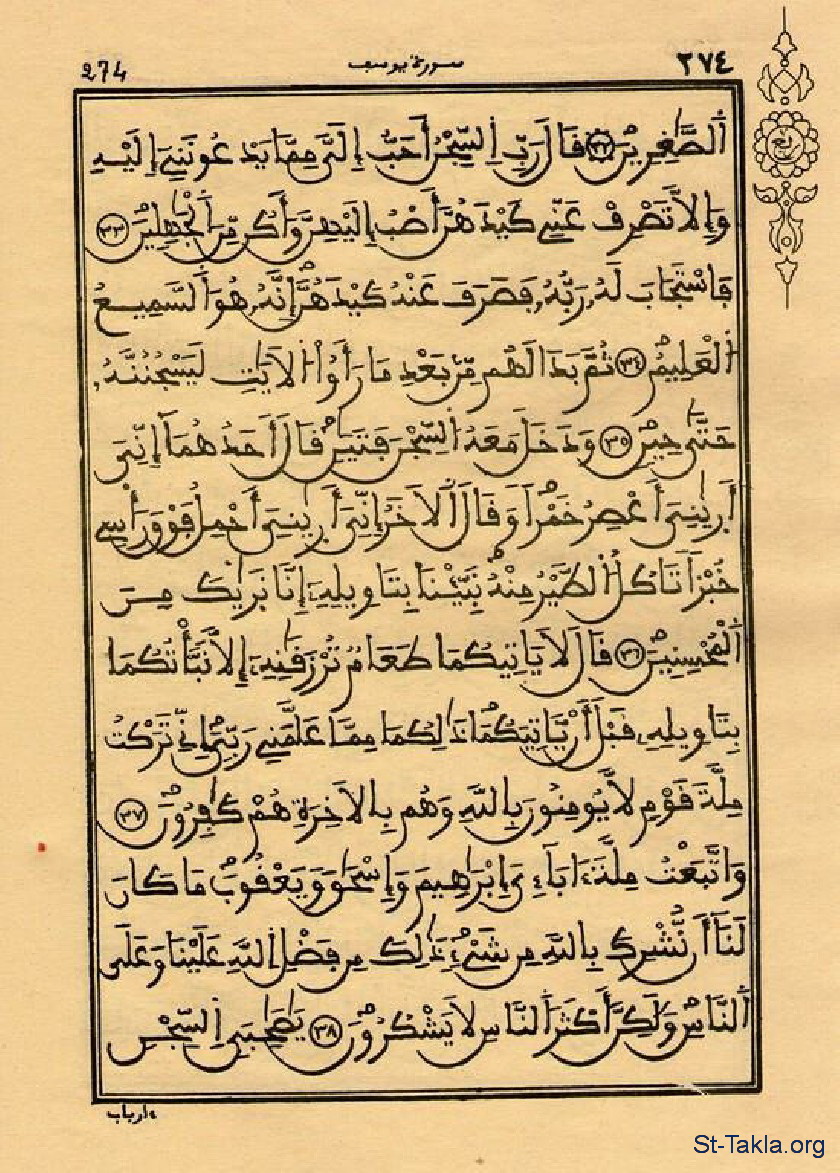 274 سورة يوسف ٢٧٤
اَ۬لصَّٰغِرِينَۖ ٣٢ قَالَ رَبِّ اِ۬لسِّجْنُ أَحَبُّ إِلَيَّ مِمَّا يَدْعُونَنِےٓ إِلَيْهِ
وَإِلَّا تَصْرِفْ عَنِّے كَيْدَهُنَّ أَصْبُ إِلَيْهِنَّ وَأَكُن مِّنَ اَ۬لْجَٰهِلِينَۖ ٣٣
فَاسْتَجَابَ لَهُۥ رَبُّهُۥ فَصَرَفَ عَنْهُ كَيْدَهُنَّۖ إِنَّهُۥ هُوَ اَ۬لسَّمِيعُ
اُ۬لْعَلِيمُۖ ٣٤ ثُمَّ بَدَا لَهُم مِّنۢ بَعْدِ مَا رَأَوُاْ اُ۬لَايَٰتِ لَيَسْجُنُنَّهُۥ
حَتَّىٰ حِينٖۖ ٣٥ وَدَخَلَ مَعَهُ اُ۬لسِّجْنَ فَتَيَٰنِۖ قَالَ أَحَدُهُمَآ إِنِّيَ
أَر۪يٰنِيٓ أَعْصِرُ خَمْراٗۖ وَقَالَ اَ۬لَاخَرُ إِنِّيَ أَر۪يٰنِيٓ أَحْمِلُ فَوْقَ رَأْسِے
خُبْزاٗ تَاكُلُ اُ۬لطَّيْرُ مِنْهُۖ نَبِّئْنَا بِتَاوِيلِهِۦٓ إِنَّا نَر۪يٰكَ مِنَ
اَ۬لْمُحْسِنِينَۖ ٣٦ قَالَ لَا يَاتِيكُمَا طَعَامٞ تُرْزَقَٰنِهِۦٓ إِلَّا نَبَّأْتُكُمَا
بِتَاوِيلِهِۦ قَبْلَ أَنْ يَّاتِيَكُمَاۖ ذَٰلِكُمَا مِمَّا عَلَّمَنِے رَبِّيَۖ إِنِّے تَرَكْتُ
مِلَّةَ قَوْمٖ لَّا يُومِنُونَ بِاللَّهِ وَهُم بِالَاخِرَةِ هُمْ كَٰفِرُونَۖ ٣٧
وَاتَّبَعْتُ مِلَّةَ ءَابَآءِيَ إِبْرَٰهِيمَ وَإِسْحَٰقَ وَيَعْقُوبَۖ مَا كَانَ
لَنَآ أَن نُّشْرِكَ بِاللَّهِ مِن شَےْءٖۖ ذَٰلِكَ مِن فَضْلِ اِ۬للَّهِ عَلَيْنَا وَعَلَى
اَ۬لنَّاسِۖ وَلَٰكِنَّ أَكْثَرَ اَ۬لنَّاسِ لَا يَشْكُرُونَۖ ٣٨ يَٰصَٰحِبَيِ اِ۬لسِّجْنِ
ءارباب
St-Takla.org